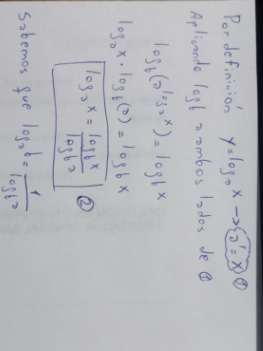 Por definición y=log₂x → (2^y = x) ①
Aplicando log_b a ambos lados de ①
log_b(2^log₂x) = log_b x
log₂x · log_b(2) = log_b x
log₂x = log_b x / log_b 2 ②
Sabemos que log₂b = 1 / log_b 2